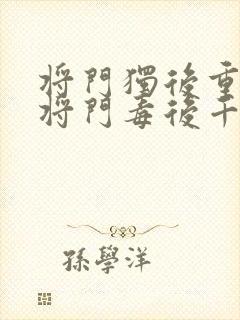 將門獨後重
將門毒後千
孫學洋